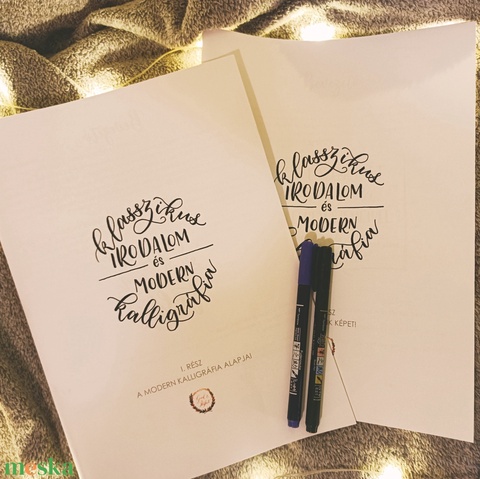 klasszikus
IRODALOM
és
MODERN
kalligráfia
I. RÉSZ
A MODERN KALLIGRÁFIA ALAPJAI
klasszikus
IRODALOM
és
MODERN
KÉPET!
meska